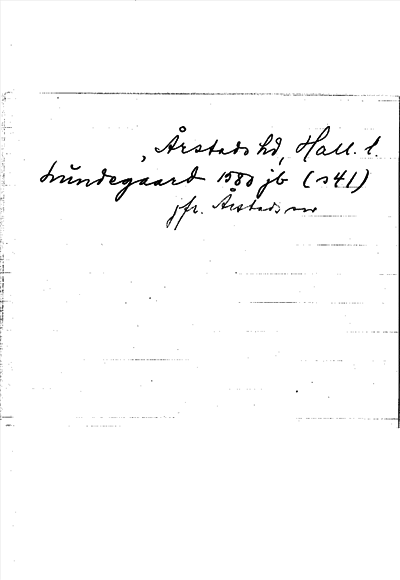 , Årstads hd, Hall. l.
Lundegaard 1580 jb (s41)
jfr. Årstads